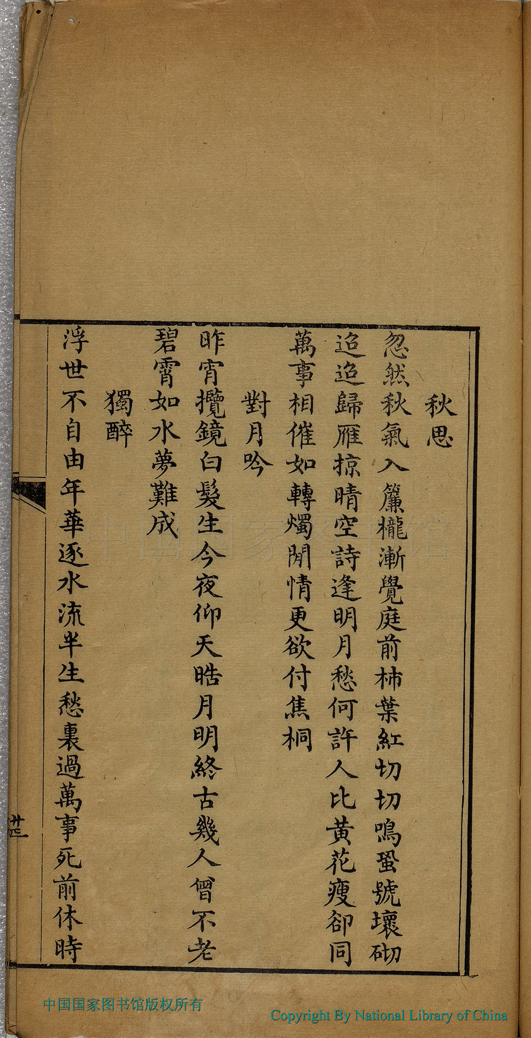 秋思
忽然秋氣入簾櫳漸覺庭前柿葉紅切切鳴蛩號壞砌
迢迢歸雁掠晴空詩逢明月愁何許人比黃花瘦卻同
萬事相催如轉燭閒情更欲付焦桐
對月吟
昨宵攬鏡白髮生今夜仰天晧月明終古幾人曾不老
碧霄如水夢難成
獨醉
浮世不自由年華逐水流半生愁裏過萬事死前休時
廿二
中国国家图书馆版权所有
Copyright By National Library of China